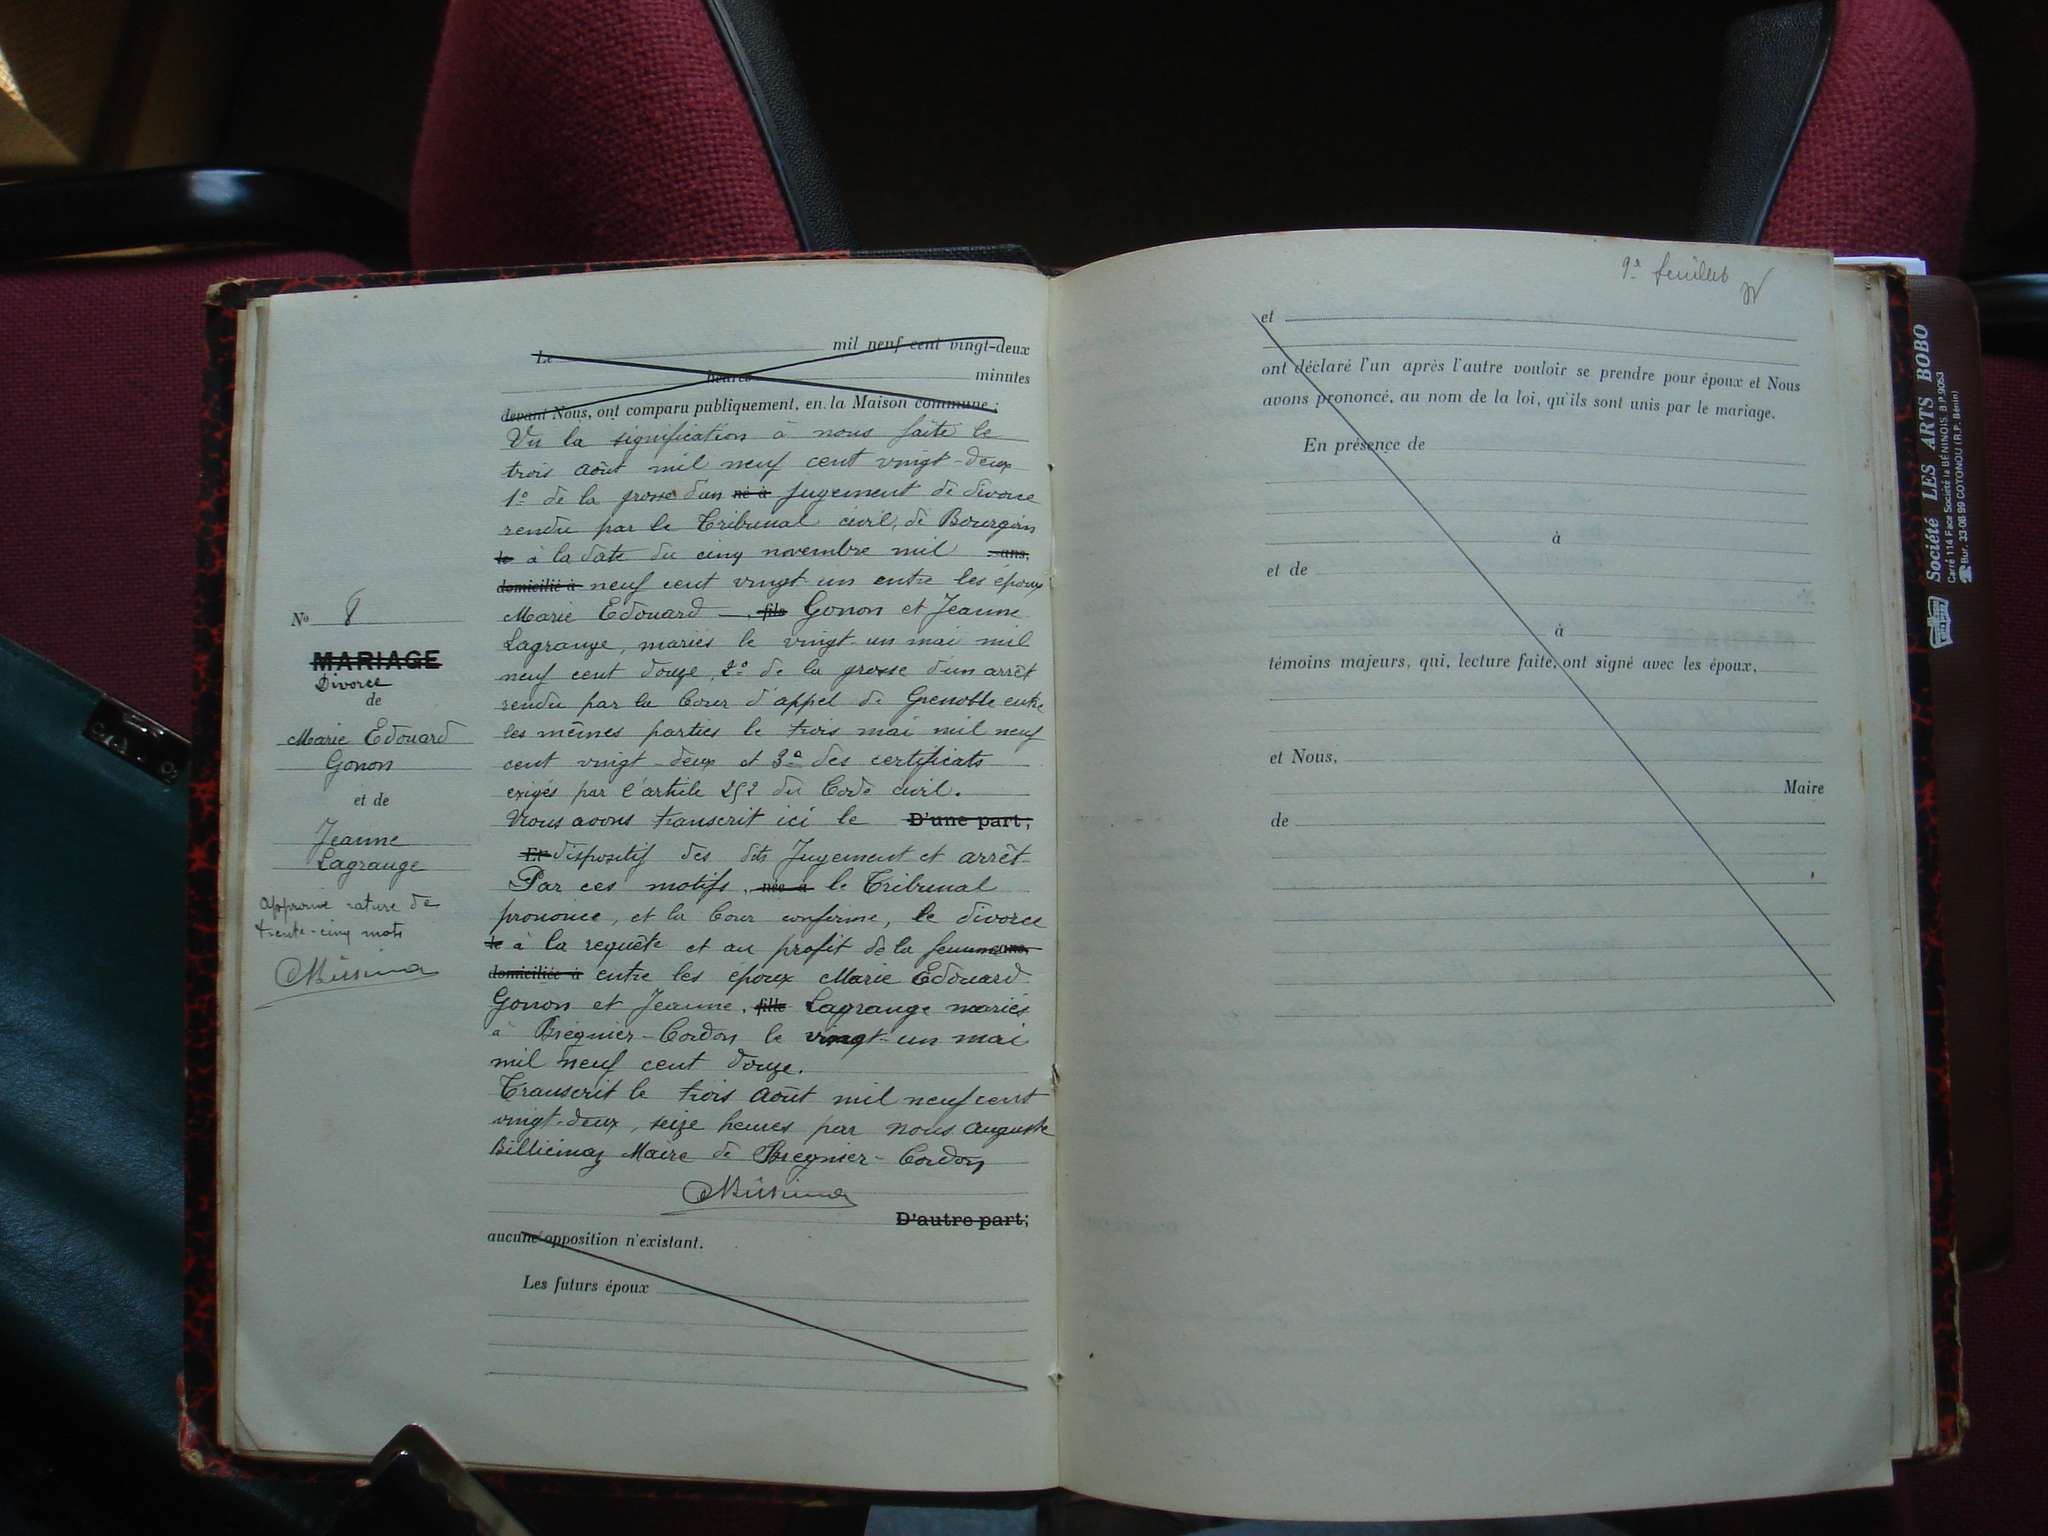 Le mil neuf cent vingt-deux
heures minutes
devant Nous, ont comparu publiquement, en la Maison commune :
Vu la signification à nous faite le
trois août mil neuf cent vingt-deux
1º de la grosse d'un né à jugement de divorce
rendu par le Tribunal civil de Bourgoin
le à la date du cinq novembre mil ans,
domicilié à neuf cent vingt un entre les époux
Marie Edouard fils Gonon et Jeanne
Lagrange, mariés le vingt-un mai mil
neuf cent douze, 2º de la grosse d'un arrêt
rendu par la Cour d'appel de Grenoble entre
les mêmes parties le trois mai mil neuf
cent vingt-deux et 3º des certificats
exigés par l'article 252 du Code civil.
Nous avons transcrit ici le D'une part;
Et dispositif des dits Jugement et arrêt
Par ces motifs, née à le Tribunal
prononce, et la Cour confirme, le divorce
le à la requête et au profit de la femme ans,
domiciliée à entre les époux Marie Edouard
Gonon et Jeanne, fille Lagrange mariés
à Brégnier-Cordon le vingt-un mai
mil neuf cent douze.
Transcrit le trois août mil neuf cent
vingt-deux, seize heures par nous Auguste
Maire de Brégnier-Cordon
D'autre part;
aucune opposition n'existant.
Les futurs époux
Nº 8
MARIAGE
Divorce
de
Marie Edouard
Gonon
et de
Jeanne
Lagrange
approuvé rature de
trente-cinq mots
9e feuillet
et
ont déclaré l'un après l'autre vouloir se prendre pour époux et Nous
avons prononcé, au nom de la loi, qu'ils sont unis par le mariage.
En présence de
à
et de
à
témoins majeurs, qui, lecture faite, ont signé avec les époux,
et Nous,
Maire
de
Société LES ARTS BOBO
Carré 114 Face Société la BÉNINOIS B.P.9053
Bur. 33-08 99 COTONOU (R.P. Bénin)